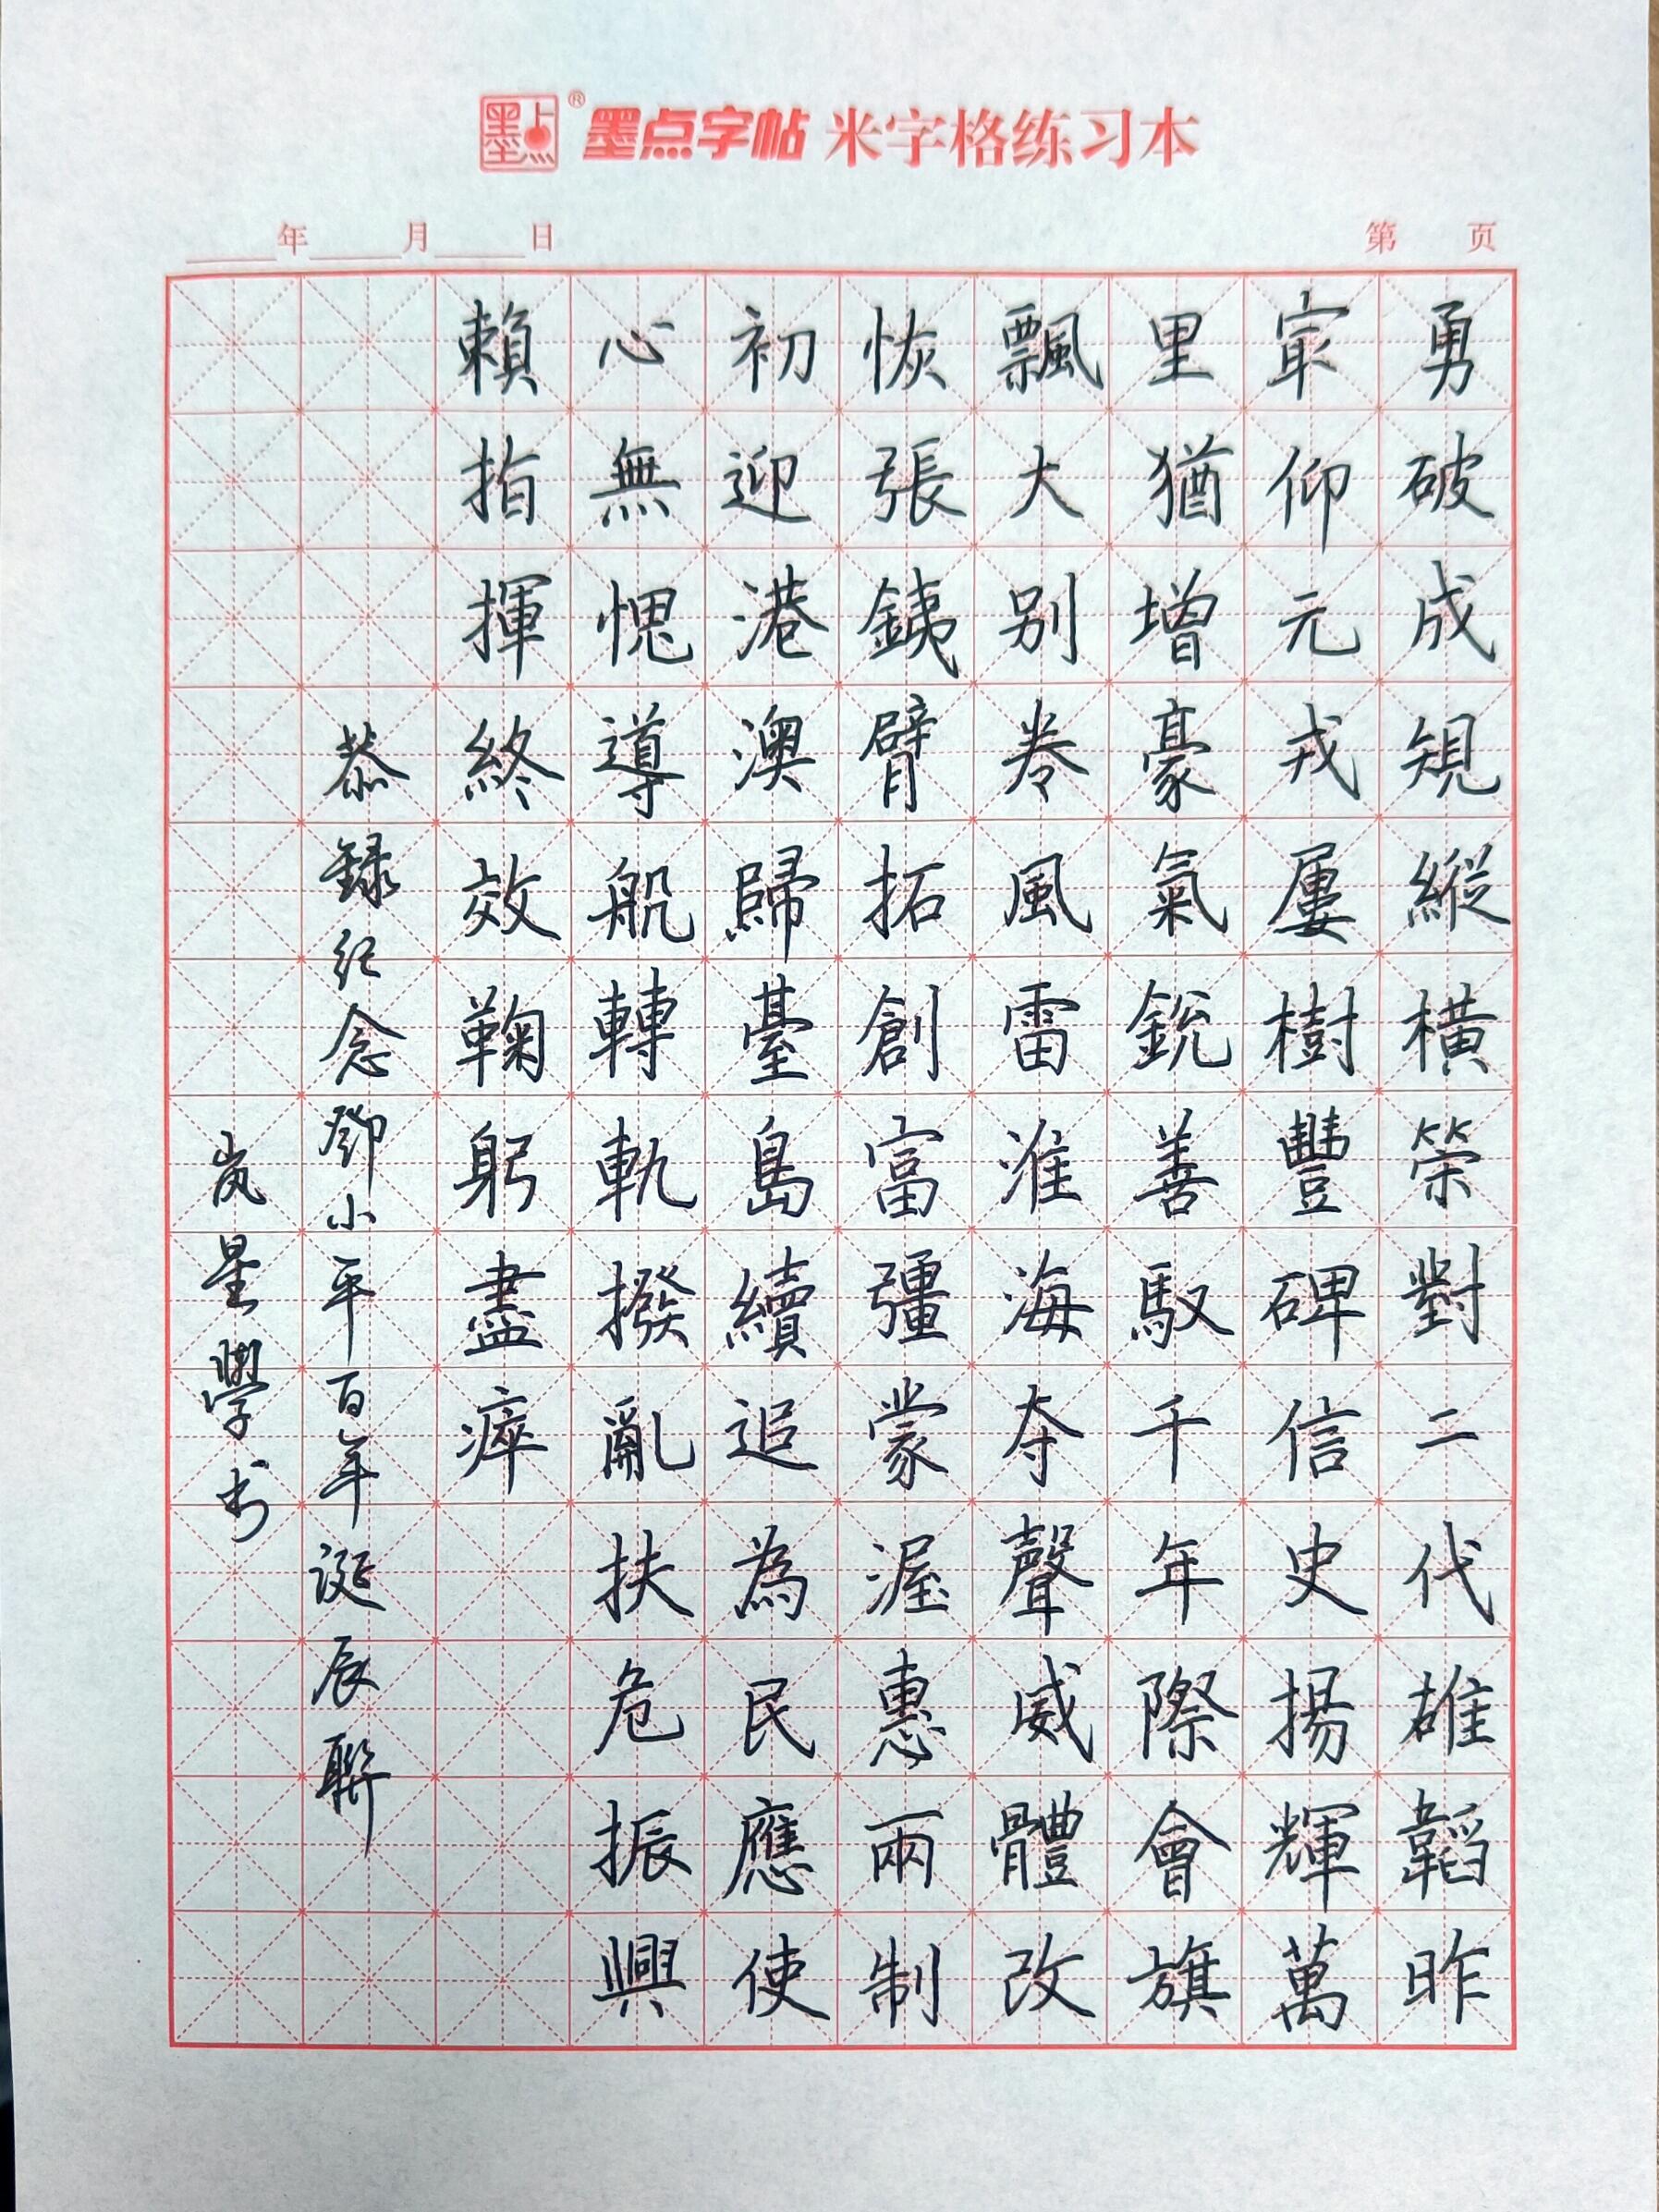 墨点® 墨点字帖 米字格练习本
年 月 日
第 页
勇破成規縱橫榮對二代雄韜昨
寂仰元戎屢樹豐碑信史揚輝萬
里猶增豪氣銳善馭千年際會旗
飄大别卷風雷淮海夺聲威體改
恢張銕臂拓創富彊蒙渥惠兩制
初迎港澳歸臺島續追為民應使
心無愧導航轉軌撥亂扶危振興
賴指揮終效鞠躬盡瘁
恭録纪念鄧小平百年诞辰聯
岚星學书